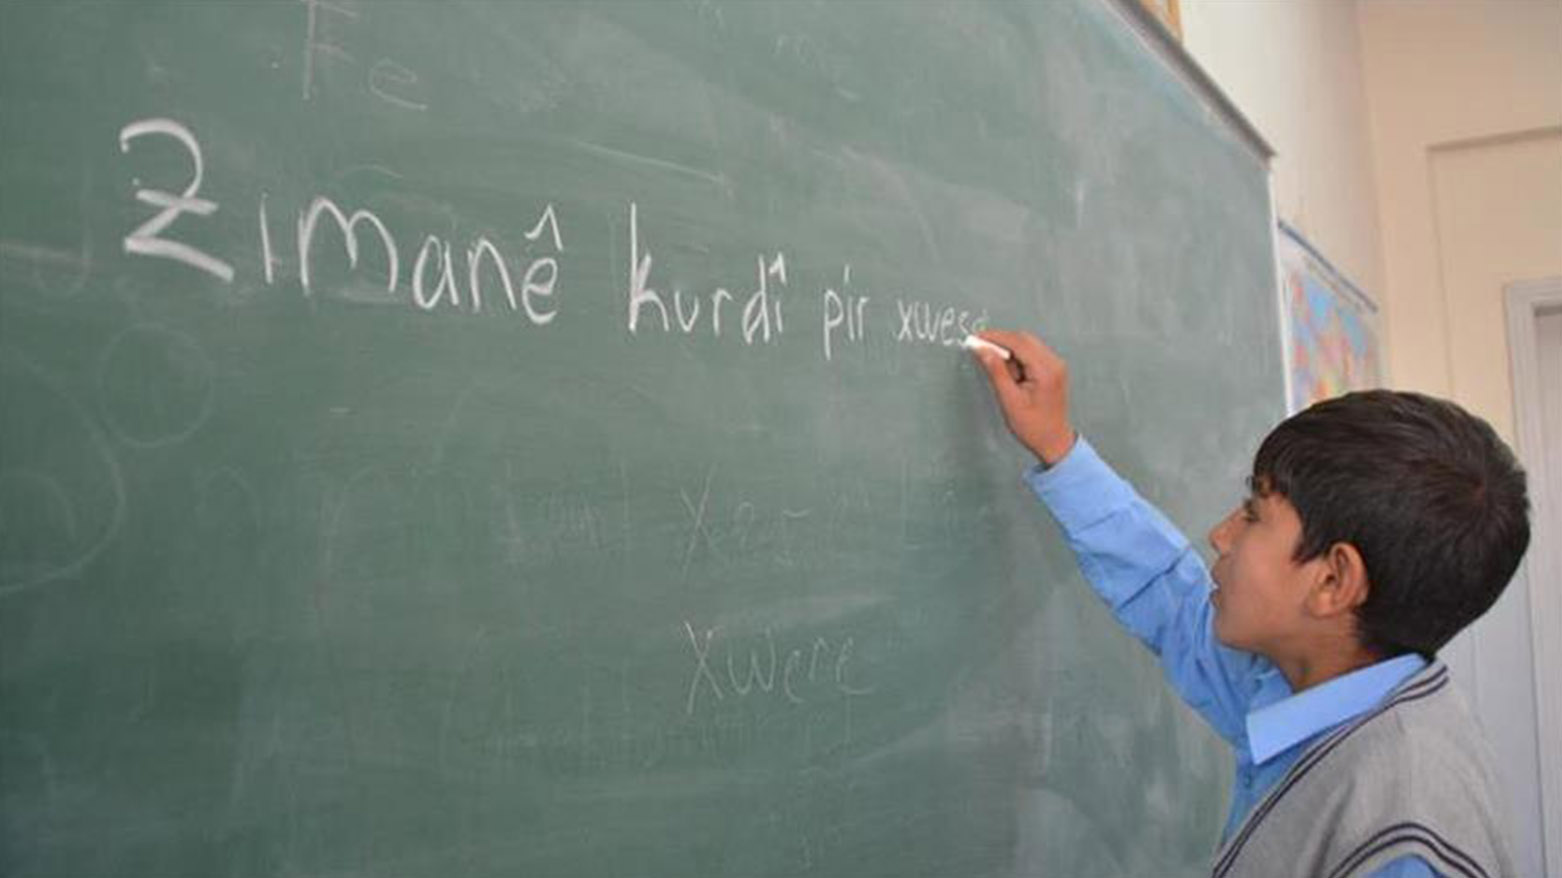 Fe
Zimanê kurdî pir xweşe
Xwere